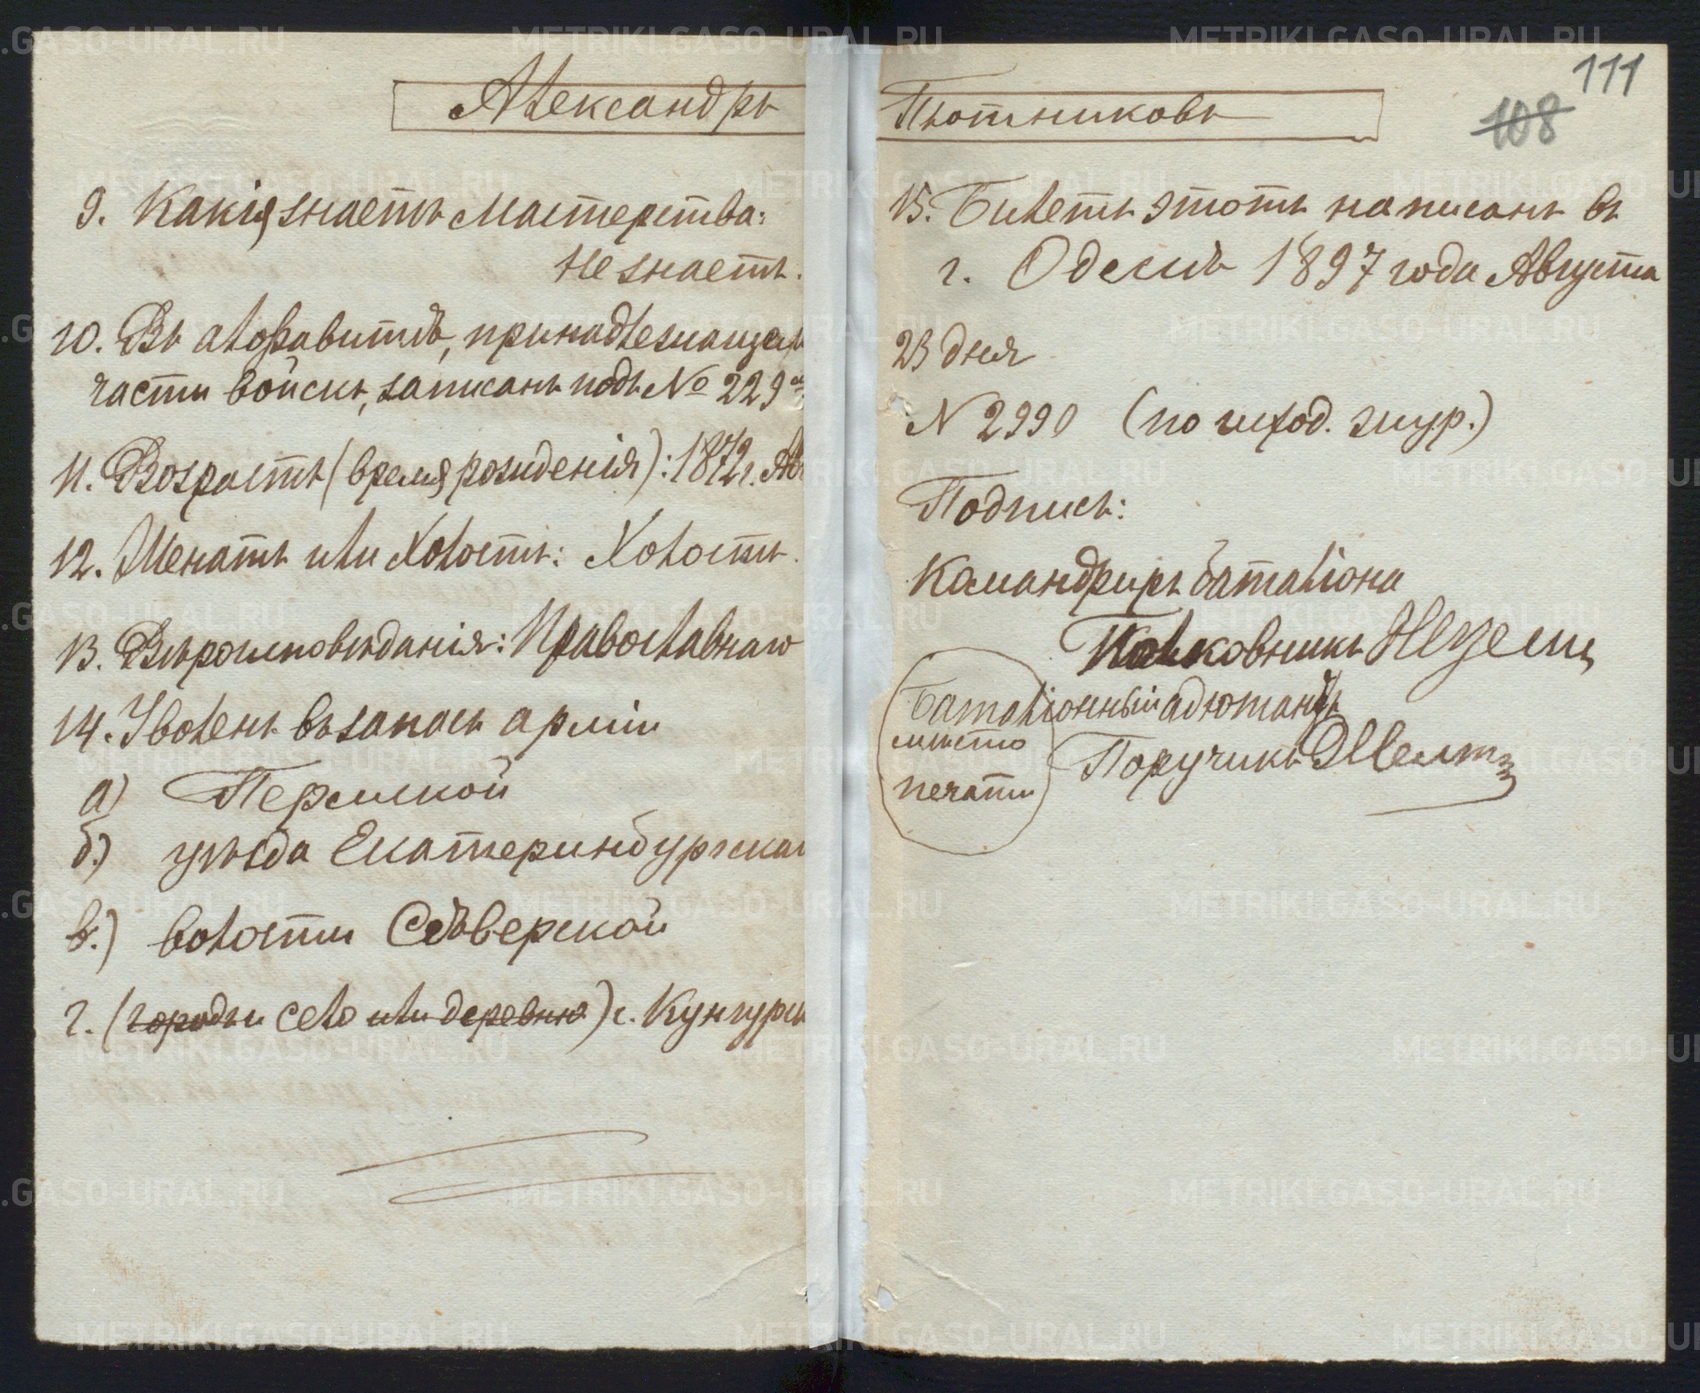 Александръ
9. Какія знаетъ мастерства:
не знаетъ.
10. Въ алфавитѣ, принадлежащей
части войскъ, записанъ подъ № 229
11. Возрастъ (время рожденія): 1872 г. Ав
12. Женатъ или Холостъ: Холостъ.
13. Вѣроисповѣданія: Православнаго
14. Уволенъ въ запасъ арміи
а) Пермской
б.) уѣзда Екатеринбургскаг
в.) волости Сѣверской
г. (городъ и село или деревня) с. Кунгурск
111
108
Плотниковъ
15. Билетъ этотъ написанъ въ
г. Одессѣ 1897 года Августа
23 дня
N 2990 (по исход. жур.)
Подпись:
Командиръ баталіона
Полковникъ
Баталіонный адютантъ
мѣсто
Поручикъ
печати
METRIKI.GASO-URAL.RU